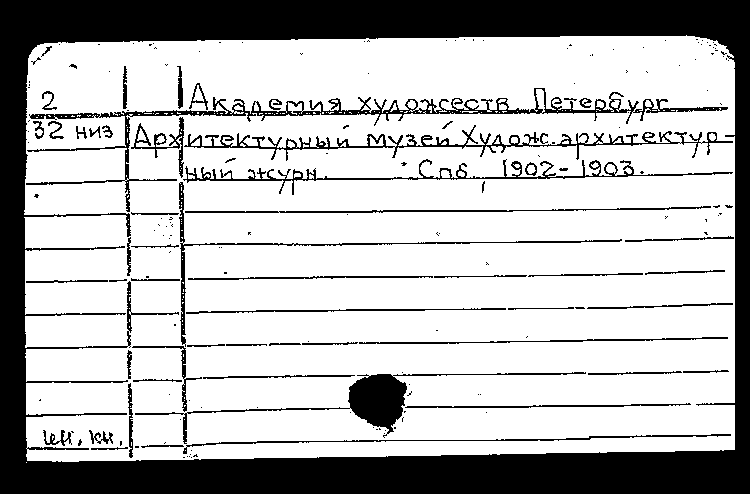 2 Академия художеств. Петербург
32 низ Архитектурный музей. Худож. архитектур-
ный журн. Спб, 1902-1903.
ин. кн.